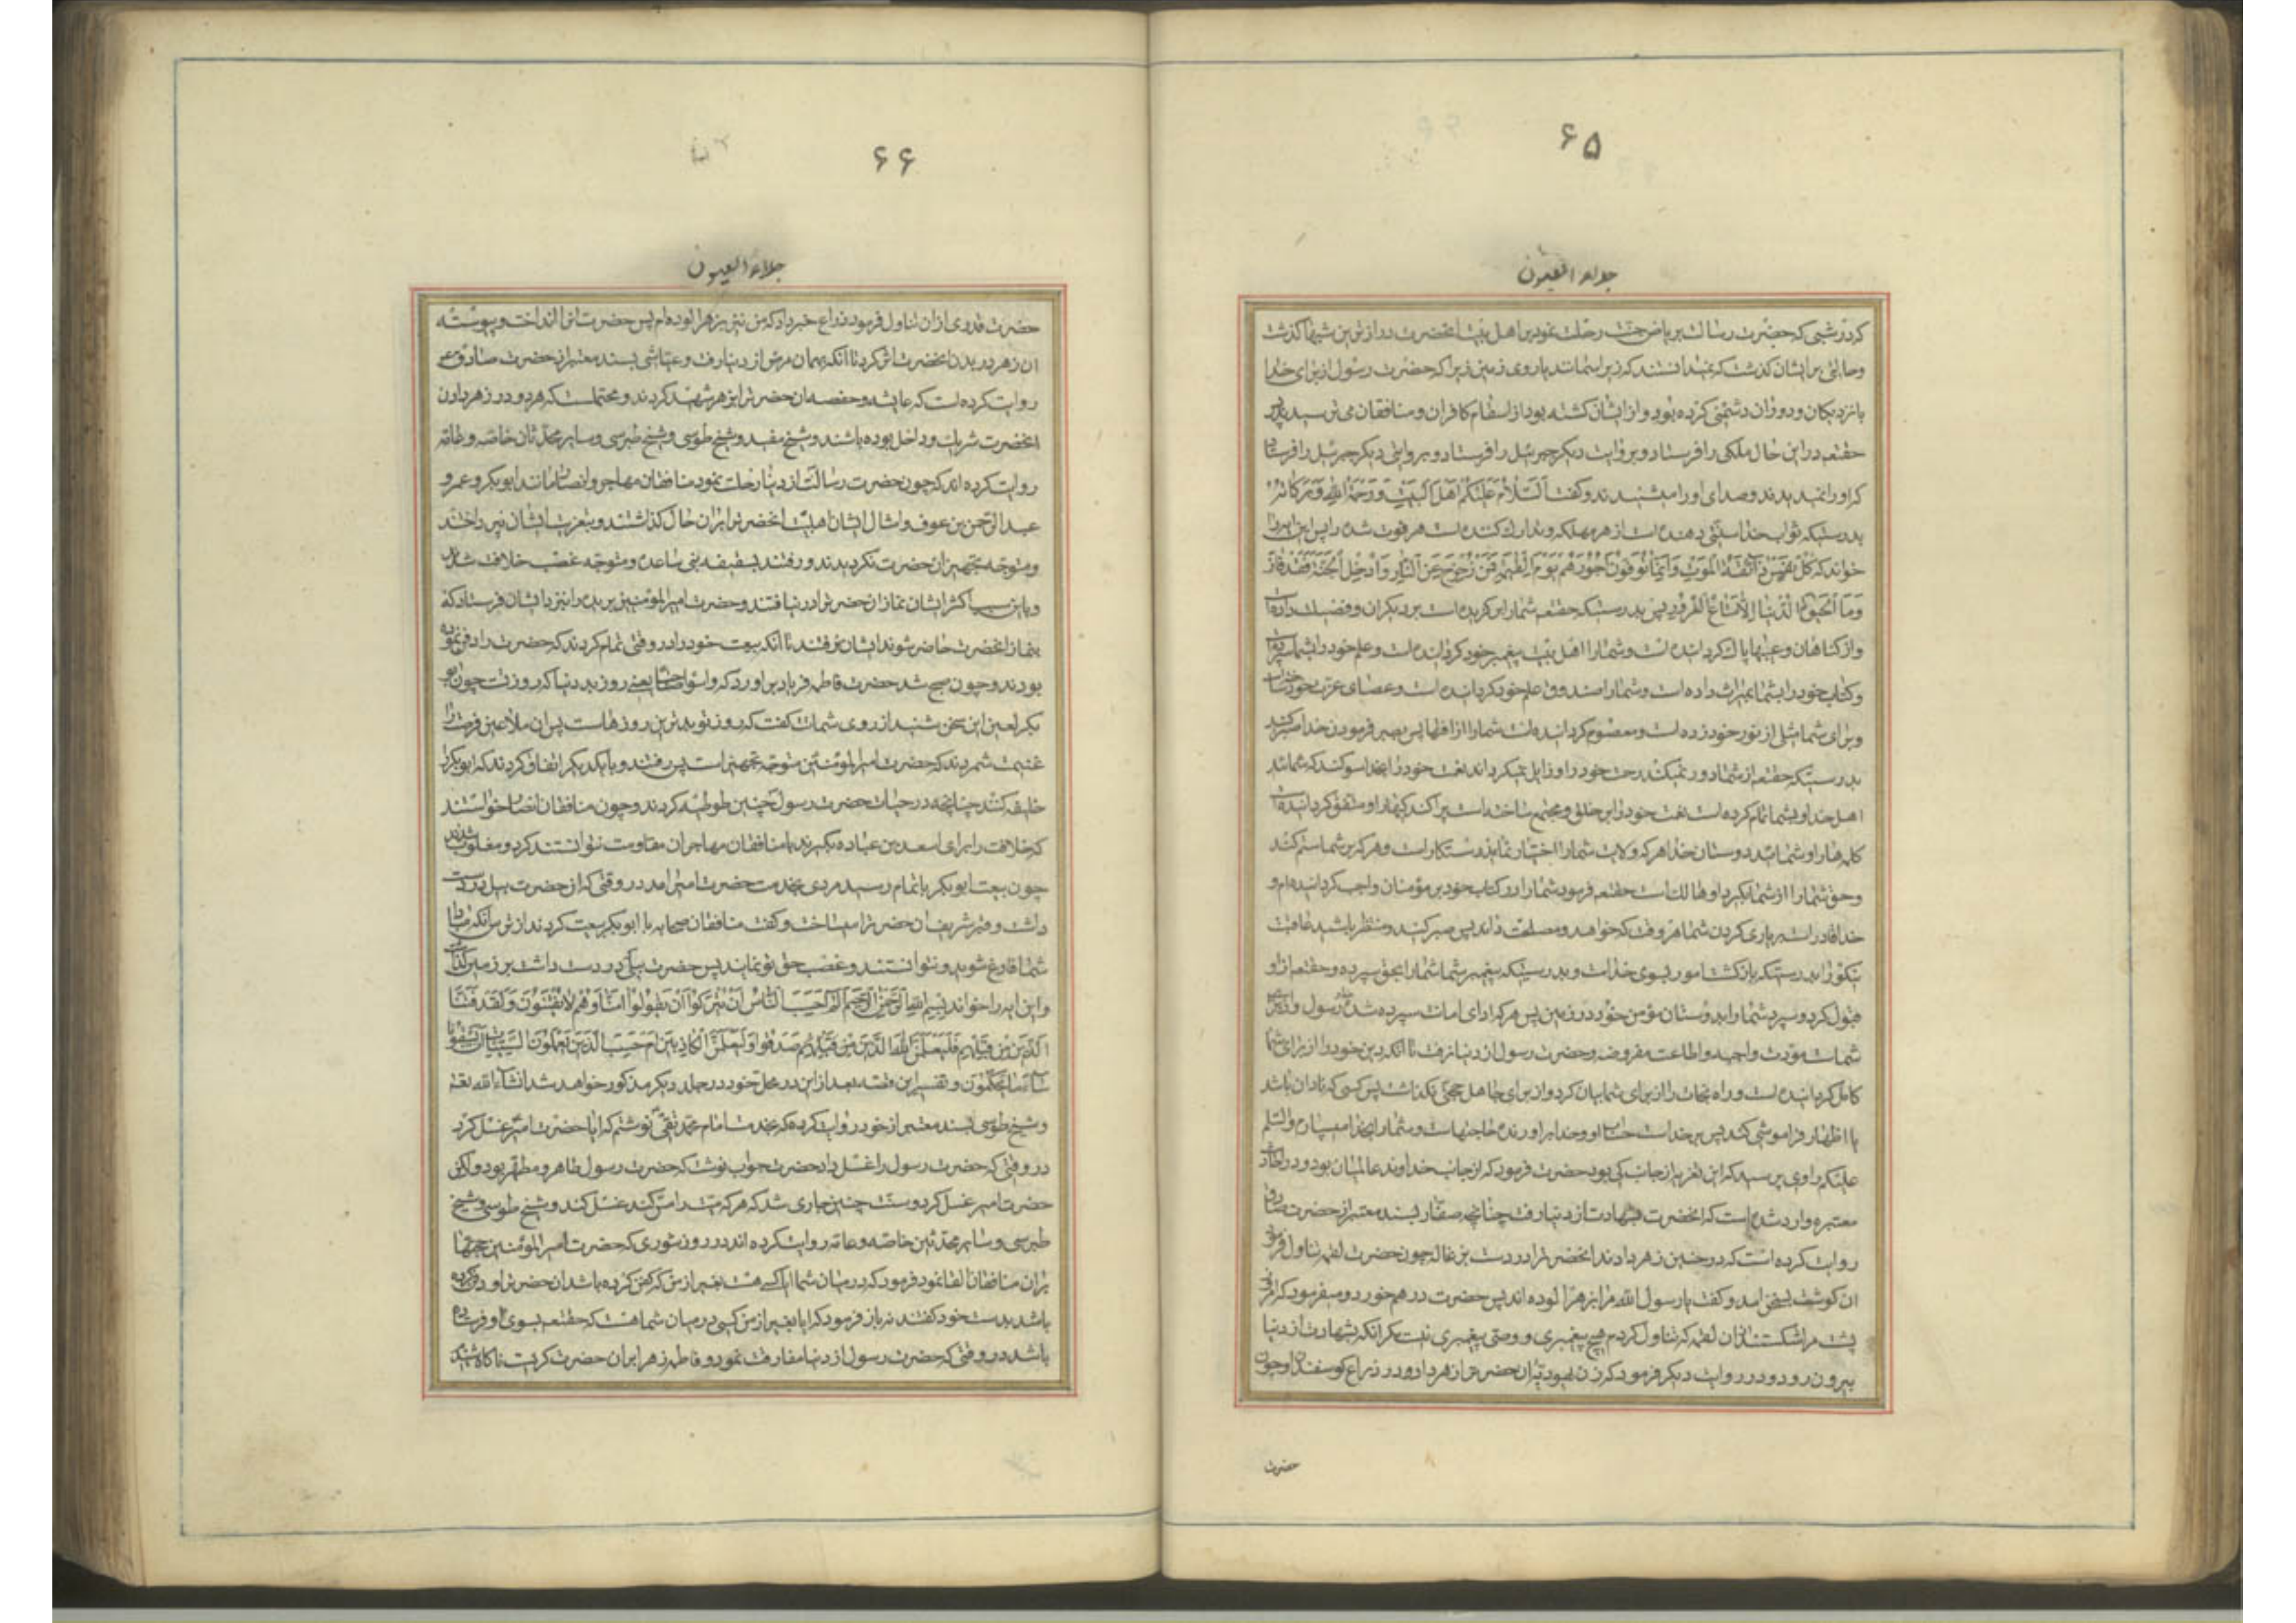 ۶۵
جلاء العیون
کرد در شبی که حضرت رسالت بریاض جنت رحلت نمود بر اهل بیت انحضرت دراز ترین شبها گذشت
و حالتی بر ایشان گذشت که نمیدانستند که زیر اسمانند یا روی زمین زیرا که حضرت رسول از برای خدا
با نزدیکان و دوران دشمنی کرده بود و از ایشان کشته بود از انتقام کافران و منافقان می ترسیدند پس
حقتعم در این حال ملکی را فرستاد و بروایت دیگر جبرئیل را فرستاد و بروایتی دیگر جبرئیل را فرستاد
که او را نمیدیدند و صدای او را میشنیدند و گفت اَلسَّلامُ عَلَیْکُمْ اَهْلَ الْبَیْتِ وَ رَحْمَةُ اللهِ وَ بَرَکاتُهُ
بدرستیکه ثواب خدا تسلی دهنده است از هر مهلکه و تدارک کننده است هر فوت شده را پس این ایه را
خواند که کُلُّ نَفْسٍ ذائِقَةُ الْمَوْتِ وَ اِنَّما تُوَفَّوْنَ اُجُورَکُمْ یَوْمَ الْقِیمَةِ فَمَنْ زُحْزِحَ عَنِ النّارِ وَ اُدْخِلَ الْجَنَّةَ فَقَدْ فازَ
وَمَا الْحَیوةُ الدُّنْیا اِلّا مَتاعُ الْغُرُورِ پس بدرستیکه حقتعم شما را برگزیده است بر دیگران و فضیلت داده است
و از گناهان و عیبها پاک گردانیده است و شما را اهل بیت پیغمبر خود گردانیده است و علم خود را بشما سپرده
و کتاب خود را بشما بمیراث داده است و شما را صندوق علم خود گردانیده است و عصای عزت خود ساخته است
و برای شما مثلی از نور خود زده است و معصوم گردانیده است شما را از افتها پس بصبر فرمودن خدا صبر کنید
بدرستیکه حقتعم از شما دور نمیکند رحمت خود را و زایل نمیگرداند نعمت خود را بخدا سوگند که شمائید
اهل خدا و بشما تمام کرده است نعمت خود را بر خلق و مجتمع ساخته است پراکندگیها را و متفق گردانیده
کلمه ها را و شمائید دوستان خدا هر که ولایت شما را اختیار نماید رستگار است و هر که بر شما ستم کند
و حق شما را از شما بگیرد او هالک است حقتعم فرمود شما را در کتاب خود بر مؤمنان واجب گردانیده ام و
خدا قادر است بر یاری کردن شما هر وقت که خواهد و مصلحت داند پس صبر کنید و منتظر باشید عاقبت
نیکو را بدرستیکه بازگشت امور بسوی خداست و بدرستیکه پیغمبر شما شما را بحق سپرده و حقتعم از او
قبول کرد و سپرد شما را بدوستان مؤمن خود در زمین پس هر که ادای امانت سپرده شده رسول و
شماست مودت واجبه و اطاعت مفروضه و حضرت رسول از دنیا نرفت تا انکه دین خود را از برای شما
کامل گردانیده است و راه نجات را از برای شما بیان کرد و از برای جاهل حجتی نگذاشت پس کسی که نادان باشد
یا اظهار فراموشی کند پس بر خداست حساب او و خدا براورنده حاجتهاست و شما را بخدا میسپارم والسلام
علیکم راوی پرسید که این تعزیه از جانب کی بود حضرت فرمود که از جانب خداوند عالمیان بود و در احادیث
معتبره وارد شده است که انحضرت بشهادت از دنیا رفت چنانچه صفار بسند معتبر از حضرت صادق
روایت کرده است که در خیبر زهر دادند انحضرت را در دست بزغاله چون حضرت لقمه تناول فرمود
ان گوشت بسخن امد و گفت یا رسول الله مرا بزهر الوده اند پس حضرت در هم خورد و میفرمود که امروز
پشت مرا شکست ان لقمه که تناول کردم هیچ پیغمبری و وصی پیغمبری نیست مگر انکه بشهادت از دنیا
بیرون رود و در روایت دیگر فرمود که زن یهودیه ان حضرت را زهر داد و در ذراع گوسفند و چون
حضرت
۶۶
جلاء العیون
حضرت قدری از ان تناول فرمود ذراع خبر داد که من نیز بزهر الوده ام پس حضرت انرا انداخت و پیوسته
ان زهر در بدن انحضرت اثر کرد تا انکه بهمان مرض از دنیا رفت و عیاشی بسند معتبر از حضرت صادق ع
روایت کرده است که عایشه و حفصه ان حضرت را بزهر شهید کردند و محتملست که هر دو در زهر دادن
انحضرت شریک و داخل بوده باشند و شیخ مفید و شیخ طوسی و شیخ طبرسی و سایر محدثان خاصه و عامه
روایت کرده اند که چون حضرت رسالت از دنیا رحلت نمود منافقان مهاجر و انصار مانند ابوبکر و عمر و
عبدالرحمن بن عوف و امثال ایشان اهلبیت انحضرت را بران حال گذاشتند و بتعزیت ایشان نپرداختند
و متوجه تجهیز ان حضرت نگردیدند و رفتند بسقیفه بنی ساعده و متوجه غصب خلافت شدند
و باین سبب اکثر ایشان نماز ان حضرت را درنیافتند و حضرت امیرالمؤمنین بریده را نیز د ایشان فرستاد که
بنماز انحضرت حاضر شوند ایشان نرفتند تا انکه بیعت خود را در وقتی تمام کردند که حضرت را دفن نموده
بودند و چون صبح شد حضرت فاطمه فریاد براورد که واسوء صباحا یعنی روز بد دنیا که روزیست چون ابو
بکر لعین این سخن شنید از روی شماتت گفت که روز تو بدترین روزهاست پس ان ملاعین فرصت را
غنیمت شمردند که حضرت امیرالمؤمنین متوجه تجهیز است پس رفتند و با یکدیگر اتفاق کردند که ابوبکر را
خلیفه کنند چنانچه در حیات حضرت رسول چنین طوطیه کردند و چون منافقان انصار خواستند
که خلافت را برای سعد بن عباده بگیرند با منافقان مهاجران مقاومت نتوانستند کرد و مغلوب شدند
چون بیعت ابوبکر باتمام رسید مردی بخدمت حضرت امیر امد در وقتی که از حضرت بیل در دست
داشت و قبر شریف ان حضرت را میساخت و گفت منافقان صحابه با ابوبکر بیعت کردند از ترس انکه مبادا
شما فارغ شوید و نتوانستند و غصب حق تو نمایند پس حضرت بیل در دست داشت بر زمین گذاشت
و این ایه را خواند بِسْمِ اللهِ الرَّحْمنِ الرَّحیمِ الم اَحَسِبَ النّاسُ اَنْ یُتْرَکُوا اَنْ یَقُولُوا امَنّا وَ هُمْ لا یُفْتَنُونَ وَ لَقَدْ فَتَنَّا
الَّذینَ مِنْ قَبْلِهِمْ فَلَیَعْلَمَنَّ اللهُ الَّذینَ صَدَقُوا وَ لَیَعْلَمَنَّ الْکاذِبینَ اَمْ حَسِبَ الَّذینَ یَعْمَلُونَ السَّیِّئاتِ اَنْ یَسْبِقُونا
ساءَ ما یَحْکُمُونَ و تفسیر این قصه بعد از این در محل خود در جلد دیگر مذکور خواهد شد انشاء الله تعم
و شیخ طوسی بسند معتبر از خود روایت کرده که بخدمت امام محمد تقی نوشتم که ایا حضرت امیر غسل کرد
در وقتی که حضرت رسول را غسل داد حضرت جواب نوشت که حضرت رسول طاهر و مطهر بود ولکن
حضرت امیر غسل کرد و سنت چنین جاری شد که هر که میت را مس کند غسل کند و شیخ طوسی و شیخ
طبرسی و سایر محدثین خاصه و عامه روایت کرده اند در روز شوری که حضرت امیرالمؤمنین حجتها
بران منافقان القا نمود فرمود که در میان شما ایا کسی هست بغیر از من که کفن کرده باشد ان حضرت را و دفن کرده
باشد بدست خود گفتند نه باز فرمود که ایا بغیر از من کسی در میان شما هست که حقتعم بسوی او فرستاده
باشد در وقتی که حضرت رسول از دنیا مفارقت نمود و فاطمه زهرا بران حضرت گریست ناگاه شنید